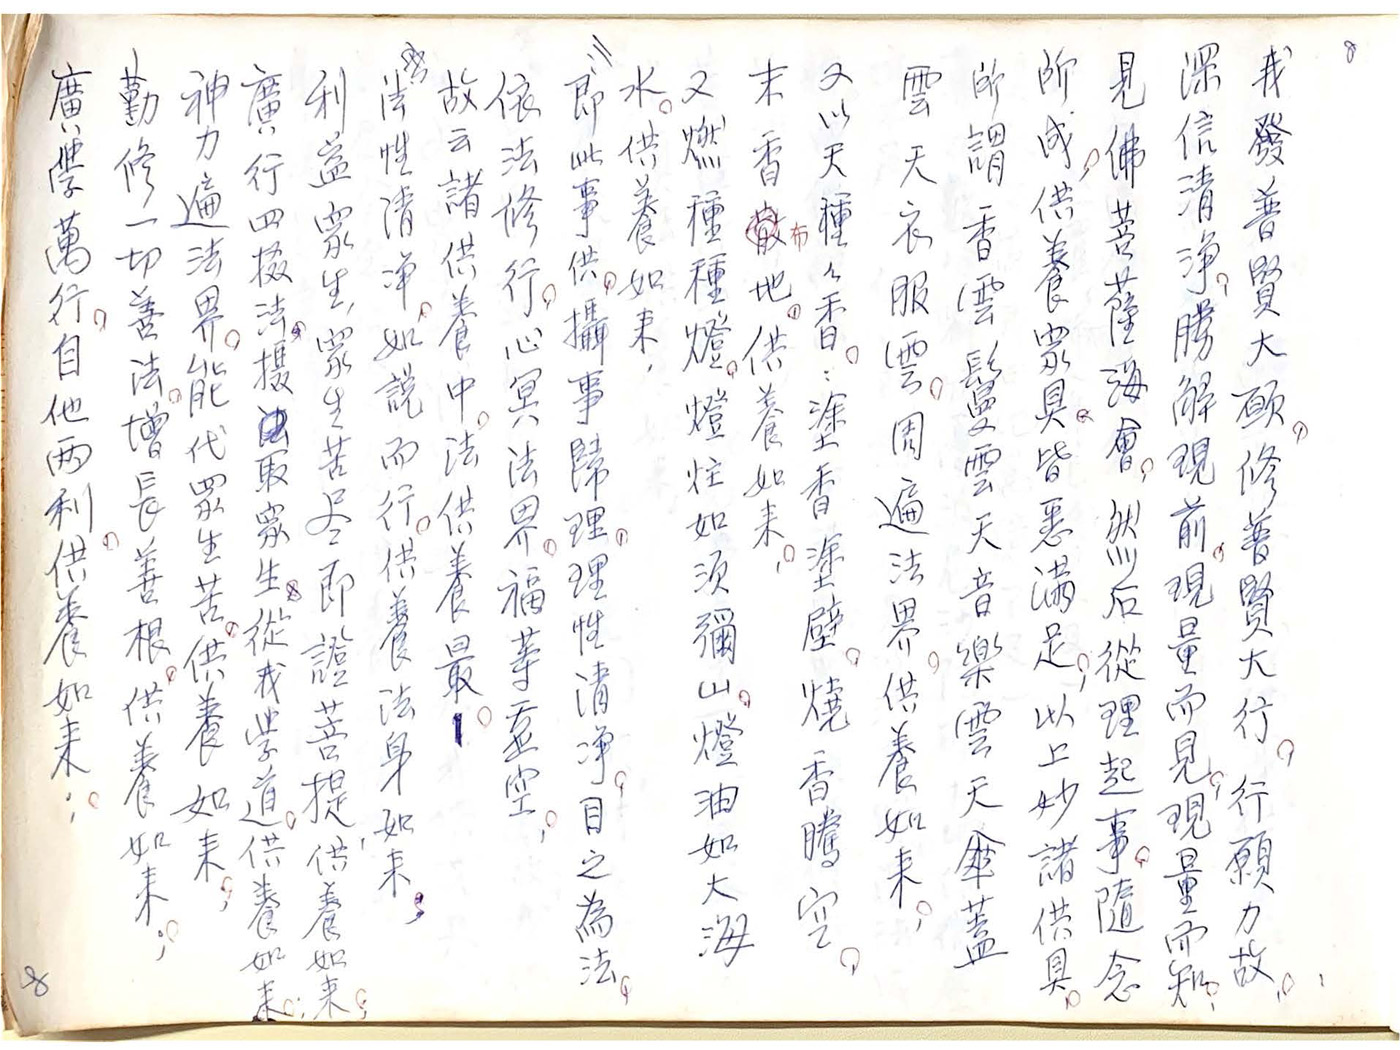 8
我發普賢大願，修普賢大行，行願力故，
深信清淨，勝解現前，現量而見，現量而知，
見佛菩薩海會，然后從理起事，隨念
所成，供養眾具，皆悉滿足，以上妙諸供具，
所謂香雲鬘雲天音樂雲天傘蓋
雲天衣服雲，周遍法界，供養如来，
又以天種々香：塗香塗壁，燒香騰空，
末香散布地，供養如来，
又燃種種燈，燈炷如須彌山，燈油如大海
水。供養如来，
即此事供，攝事歸理，理性清淨，目之為法，
依法修行，心冥法界，福等虛空，
故云諸供養中，法供養最。
法性清淨，如說而行，供養法身如来；
利益眾生，眾生苦尽即證菩提，供養如来；
廣行四攝法，攝取眾生，從我學道，供養如来；
神力遍法界，能代眾生苦，供養如来，
勤修一切善法，增長善根，供養如来；
廣學萬行，自他兩利，供養如来；
8